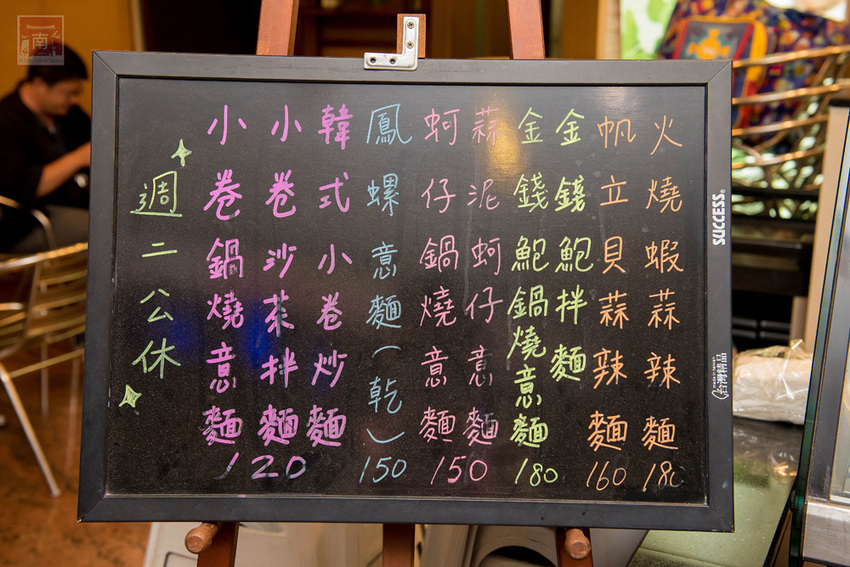 火燒蝦蒜辣麵
180
帆立貝蒜辣麵
160
金錢鮑拌麵
金錢鮑鍋燒意麵
180
蒜泥蚵仔意麵
蚵仔鍋燒意麵
150
鳳螺意麵(乾)
150
韓式小卷炒麵
小卷沙茶拌麵
小卷鍋燒意麵
120
週二公休
SUCCESS®
台灣精品
南